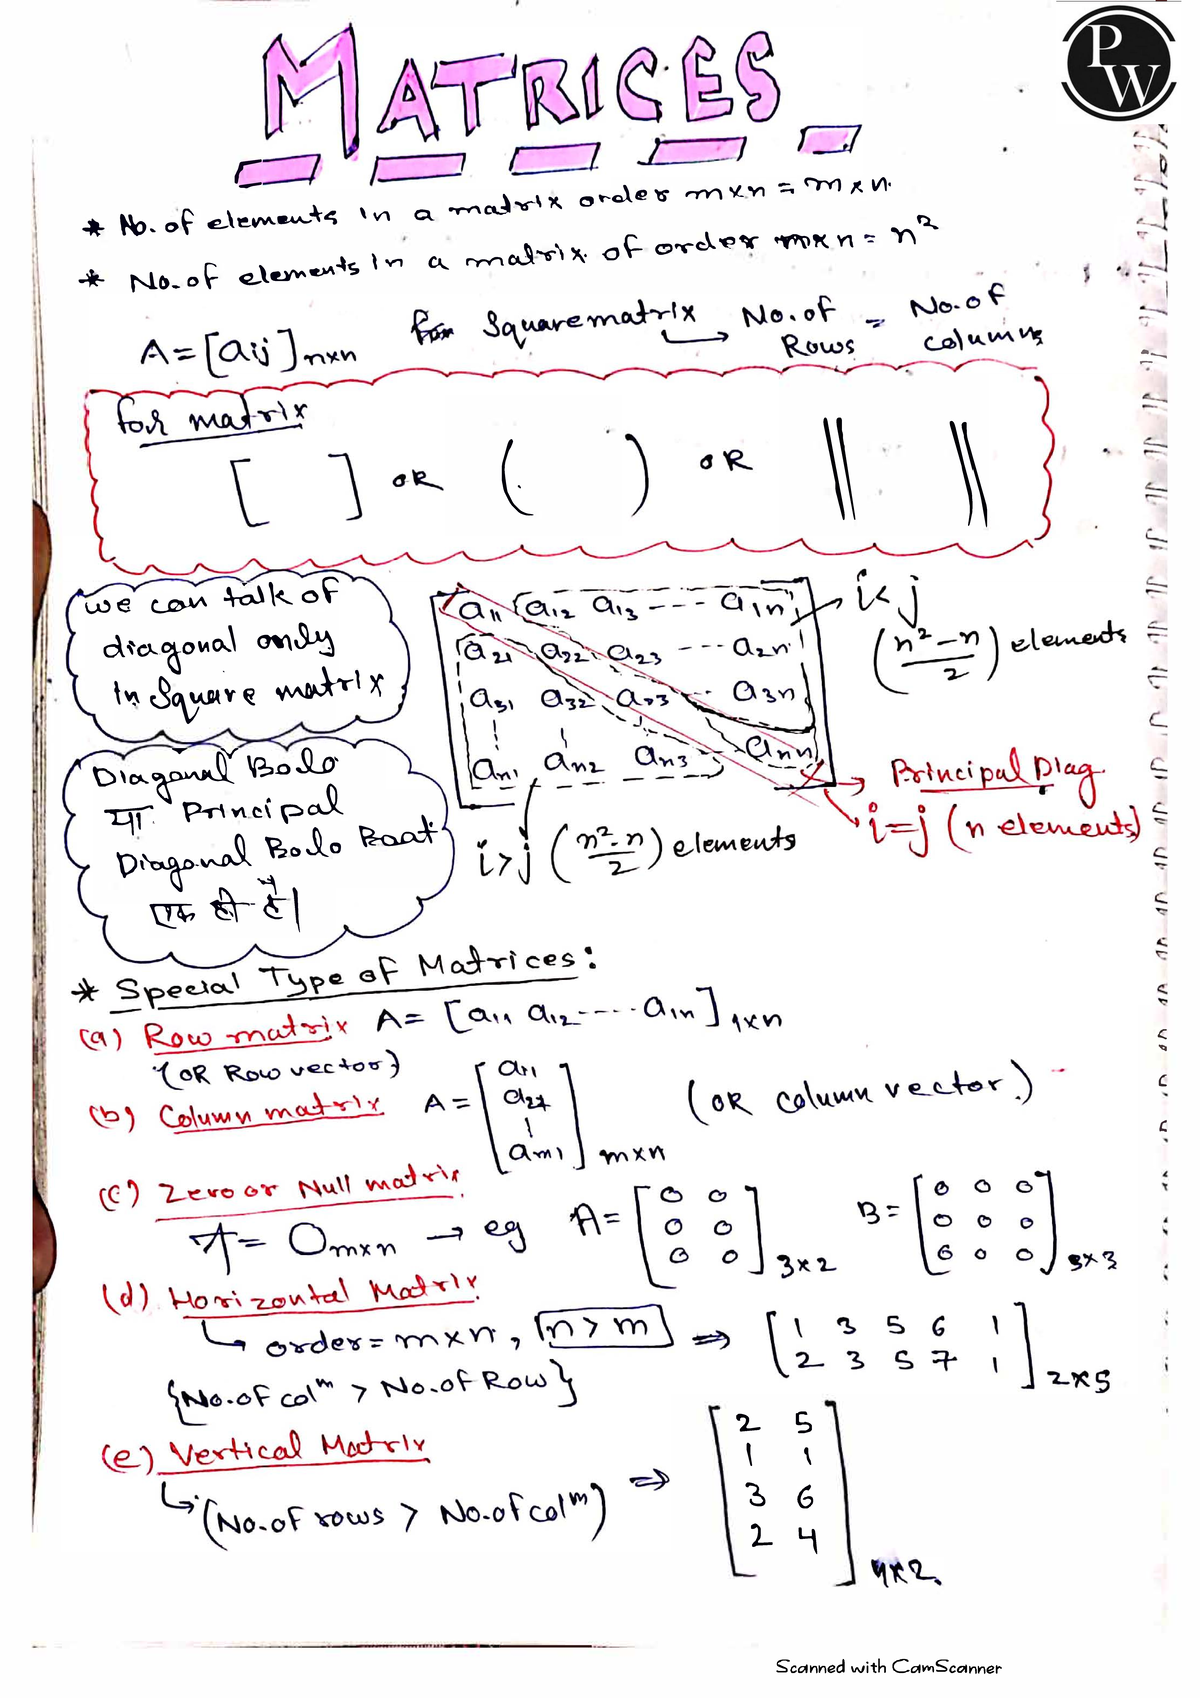 MATRICES
PW
* No. of elements in a matrix order m×n = m×n.
* No. of elements in a matrix. of order n×n = n²
A = [aij]n×n
for Square matrix → No. of Rows = No. of columns
for matrix
[ ] OR ( ) OR || ||
we can talk of
diagonal only
in Square matrix
a11 a12 a13 --- a1n
a21 a22 a23 --- a2n
a31 a32 a33 -- a3n
an1 an2 an3 ann
i<j
(n²-n/2) elements
Principal Diag.
i=j (n elements)
i>j (n²-n/2) elements
Diagonal Bolo
या Principal
Diagonal Bolo Baat
एक ही है।
* Special Type of Matrices:
(a) Row matrix A = [a11 a12 ---- a1n]1×n
{OR Row vector}
(b) Column matrix A = [a11 a21 | am1]m×n (OR column vector.)
(c) Zero or Null matrix
A = Om×n → eg A = [0 0
0 0
0 0]3×2
B = [0 0 0
0 0 0
0 0 0]3×3
(d) Horizontal Matrix
↳ order = m×n, n>m ⇒ [1 3 5 6 1
2 3 5 7 1]2×5
{No. of colm > No. of Row}
(e) Vertical Matrix
↳ (No. of rows > No. of colm) ⇒ [2 5
1 1
3 6
2 4]4×2.
Scanned with CamScanner